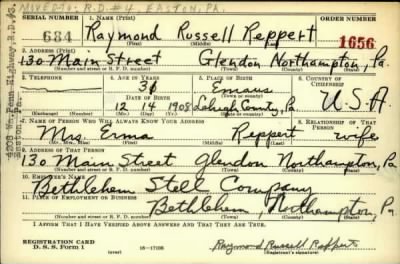 MOVED TO: R.D. #4, EASTON, PA.
SERIAL NUMBER 1. NAME (Print) ORDER NUMBER
684 Raymond Russell Reppert 1656
(First) (Middle) (Last)
2. ADDRESS (Print)
130 Main Street Glendon Northampton, Pa.
(Number and street or R. F. D. number) (Town) (County) (State)
3. TELEPHONE 4. AGE IN YEARS 5. PLACE OF BIRTH 6. COUNTRY OF CITIZENSHIP
31 Emaus
DATE OF BIRTH (Town or county)
12 14 1908 Lehigh County, Pa. U.S.A.
(Mo.) (Day) (Yr.) (State or country)
7. NAME OF PERSON WHO WILL ALWAYS KNOW YOUR ADDRESS 8. RELATIONSHIP OF THAT PERSON
Mrs. Erma Reppert wife
(Mr., Mrs., Miss) (First) (Middle) (Last)
9. ADDRESS OF THAT PERSON
130 Main Street Glendon Northampton, Pa
(Number and street or R. F. D. number) (Town) (County) (State)
10. EMPLOYER'S NAME
Bethlehem Steel Company
11. PLACE OF EMPLOYMENT OR BUSINESS
Bethlehem, Northampton, Pa
(Number and street or R. F. D. number) (Town) (County) (State)
I AFFIRM THAT I HAVE VERIFIED ABOVE ANSWERS AND THAT THEY ARE TRUE.
REGISTRATION CARD
D. S. S. Form 1 (over) 16—17105 Raymond Russell Reppert
(Registrant's signature)
Wm. Penn Highway, R.D. #3,
Easton, Pa.